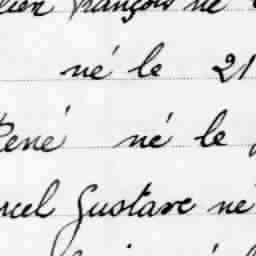 François né
né le 21
René né le
Gustave né